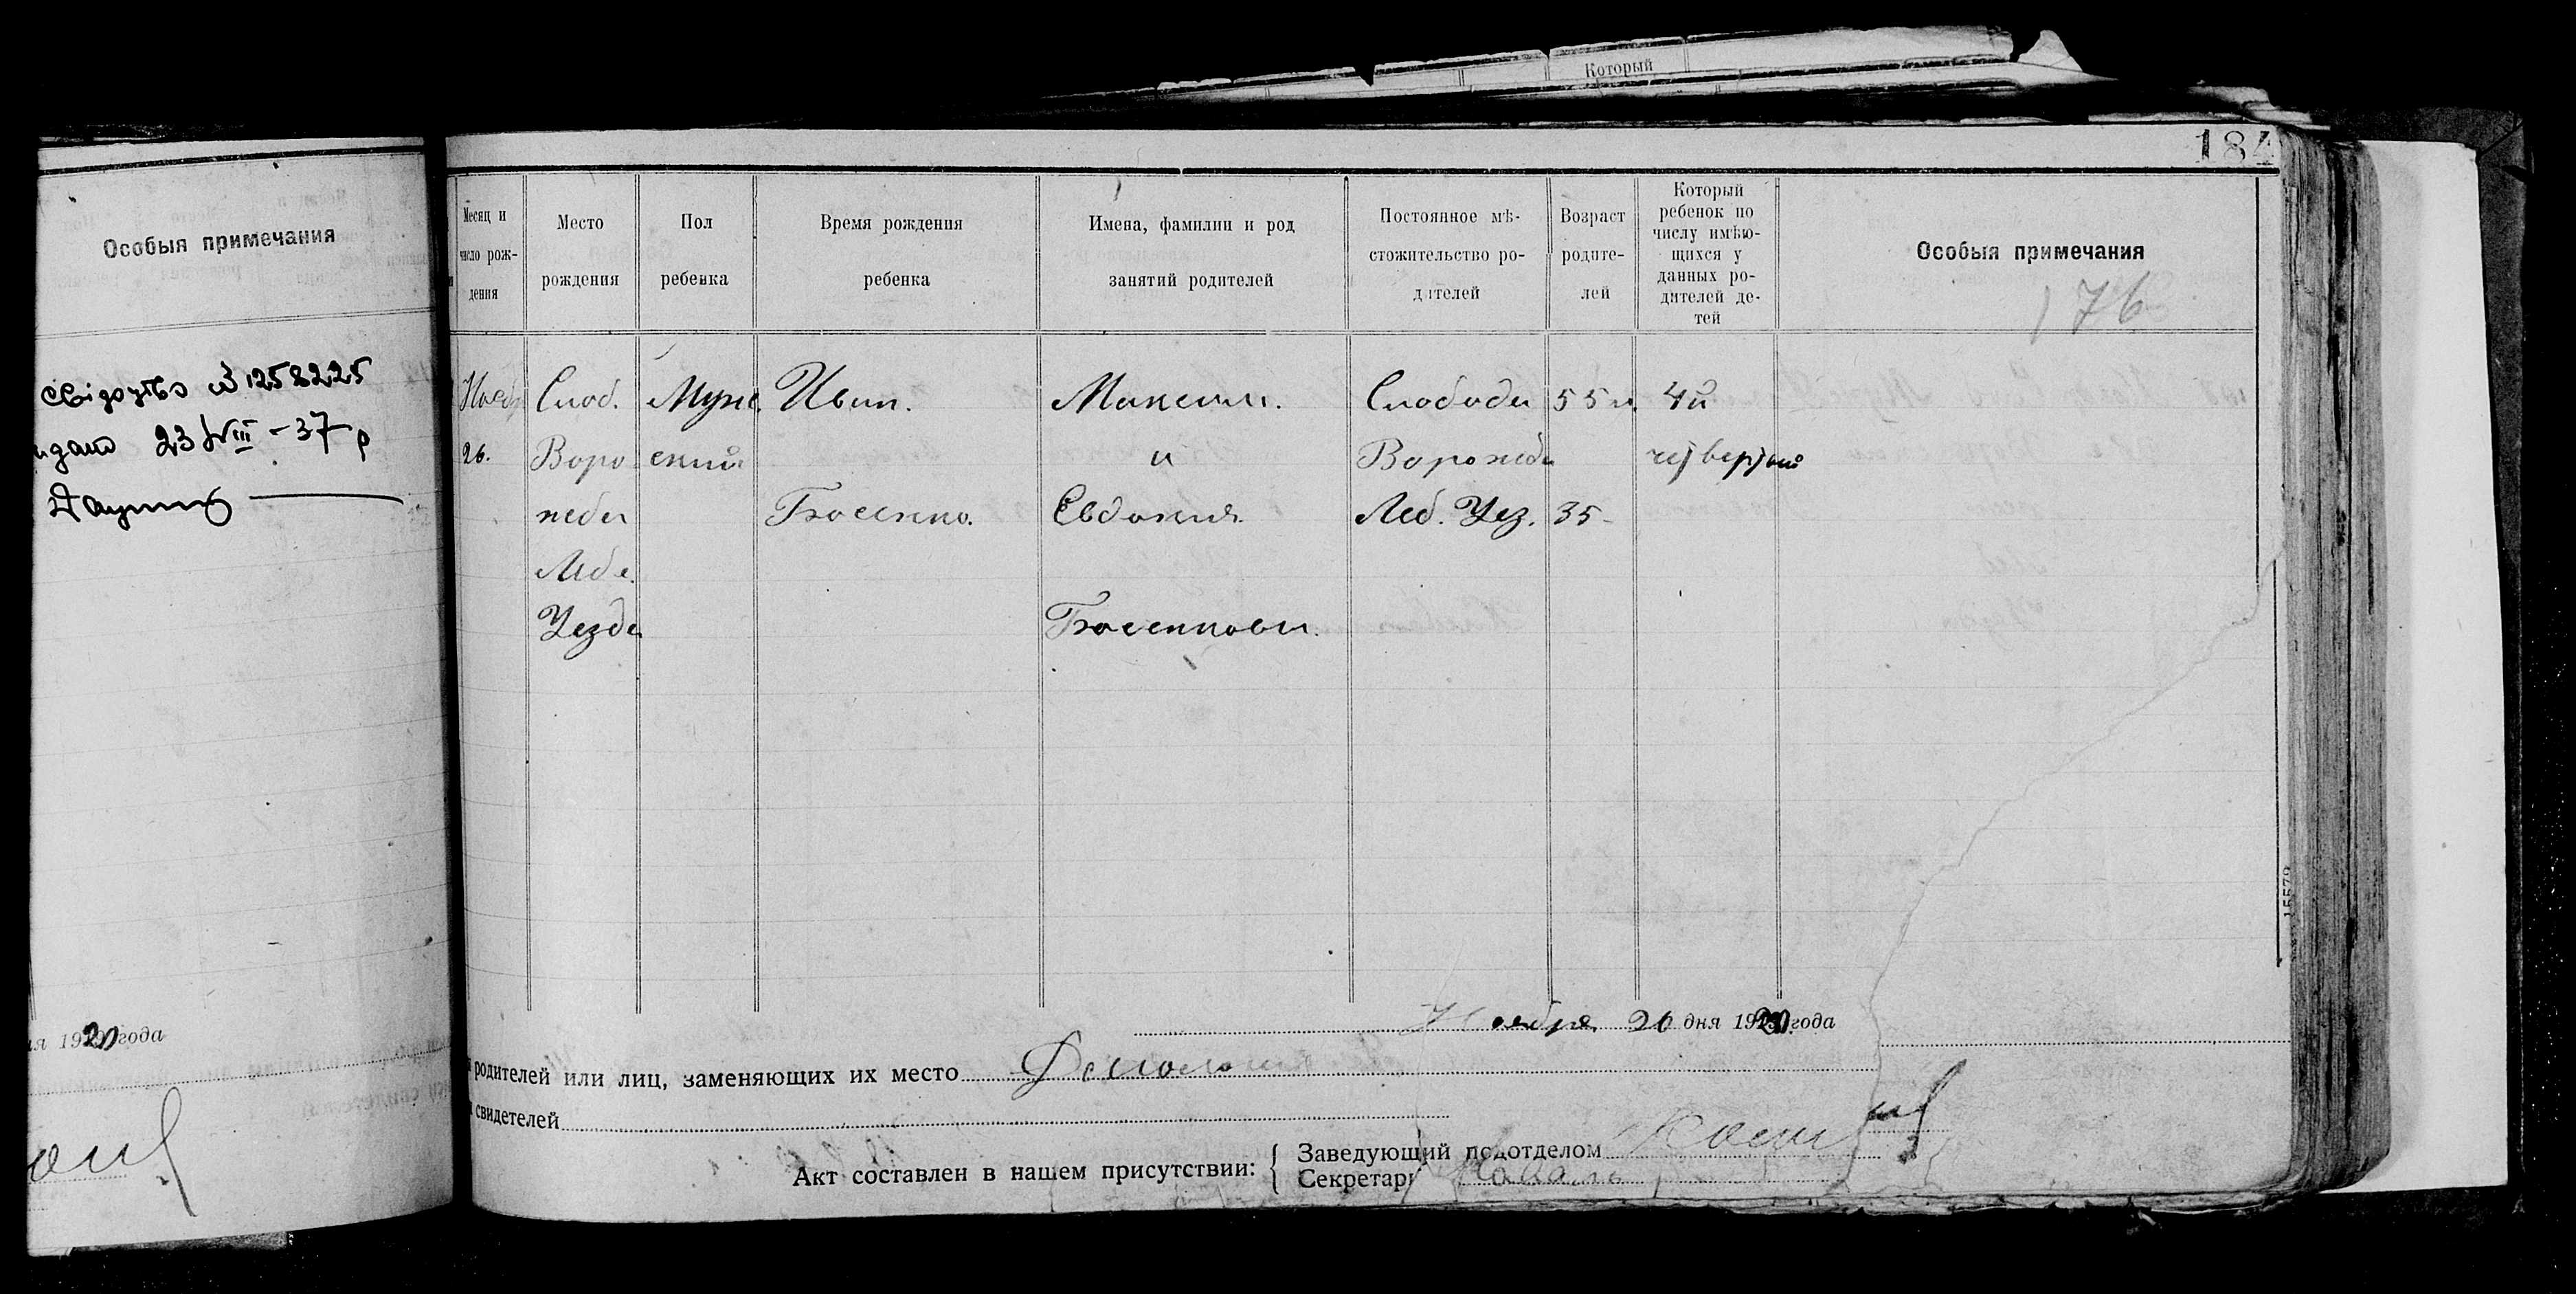 Который
184
Особыя примечания
свідоцтво № 1258225
23/VIII – 37 р
1920 года
Месяц и число рож-
дения
Место
рождения
Пол
ребенка
Время рождения
ребенка
Имена, фамилии и род
занятий родителей
Постоянное мѣ-
стожительство ро-
дителей
Возраст
родите-
лей
Который
ребенок по
числу имѣю-
щихся у
данных ро-
дителей де-
тей
Особыя примечания
176
Ноебр Слоб. Муже Иван. Максим. Слободы 55 л. 4й
26. Воро ский и Ворожбы четвертый
жбы Евдокия Леб. Уез. 35-
Лебе.
Уезда
Ноября 26 дня 1920 года
родителей или лиц, заменяющих их место
свидетелей
Акт составлен в нашем присутствии: Заведующий подотделом
Секретарь
15579